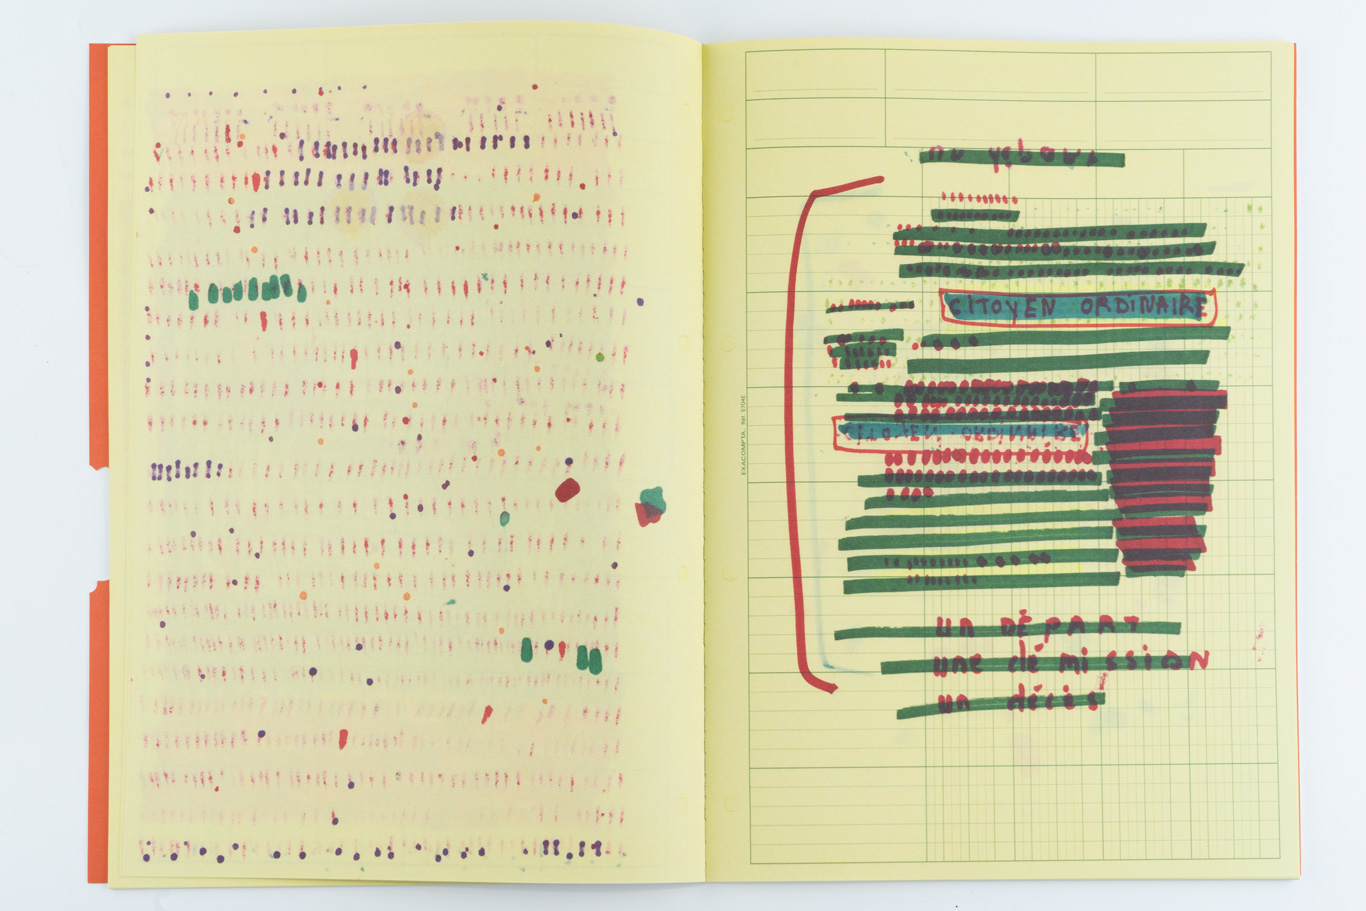 CITOYEN ORDINAIRE
CITOYEN ORDINAIRE
EXACOMPTA
UN DÉPART
une démission
un décès